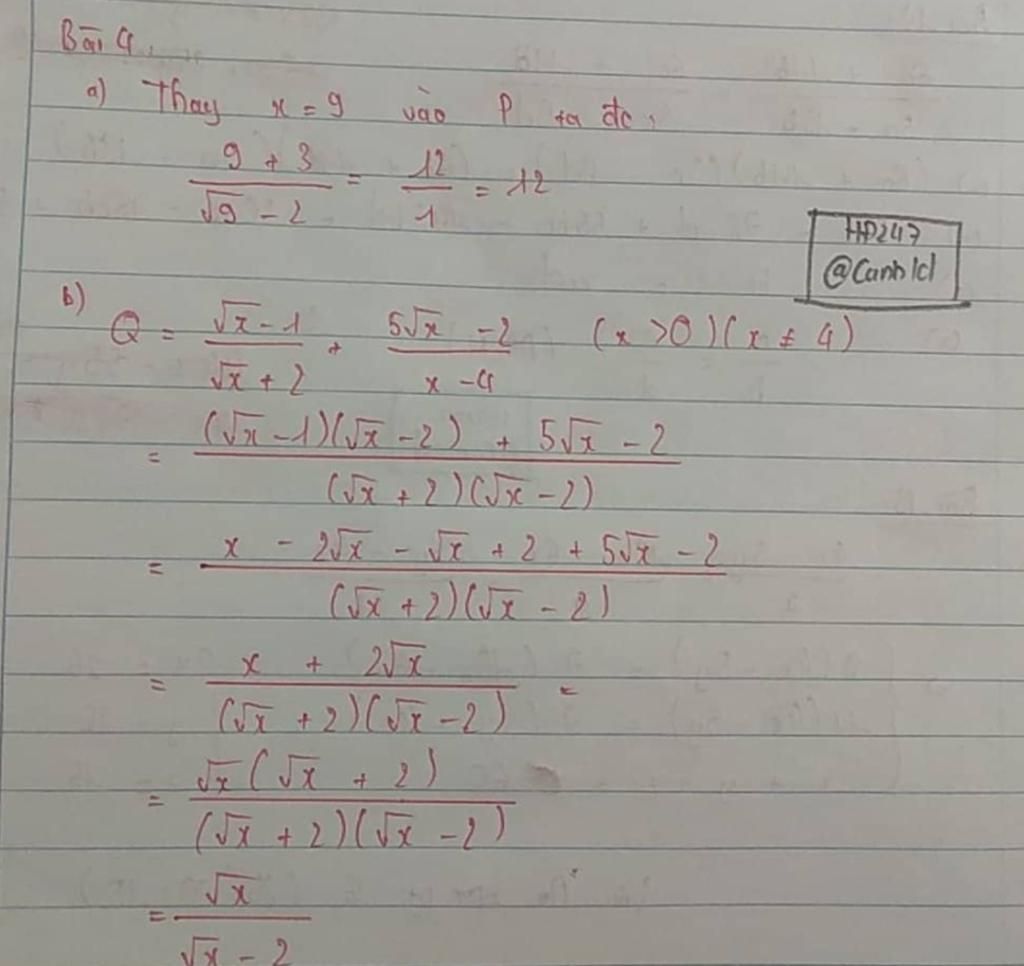 Bài 4.
a) Thay x = 9 vào P ta đc,
(9 + 3)/(√9 - 2) = 12/1 = 12
HP247
@Canhlcl
b) Q = (√x - 1)/(√x + 2) + (5√x - 2)/(x - 4) (x > 0)(x ≠ 4)
= ((√x - 1)(√x - 2) + 5√x - 2)/((√x + 2)(√x - 2))
= (x - 2√x - √x + 2 + 5√x - 2)/((√x + 2)(√x - 2))
= (x + 2√x)/((√x + 2)(√x - 2)) =
= (√x(√x + 2))/((√x + 2)(√x - 2))
= √x/(√x - 2)